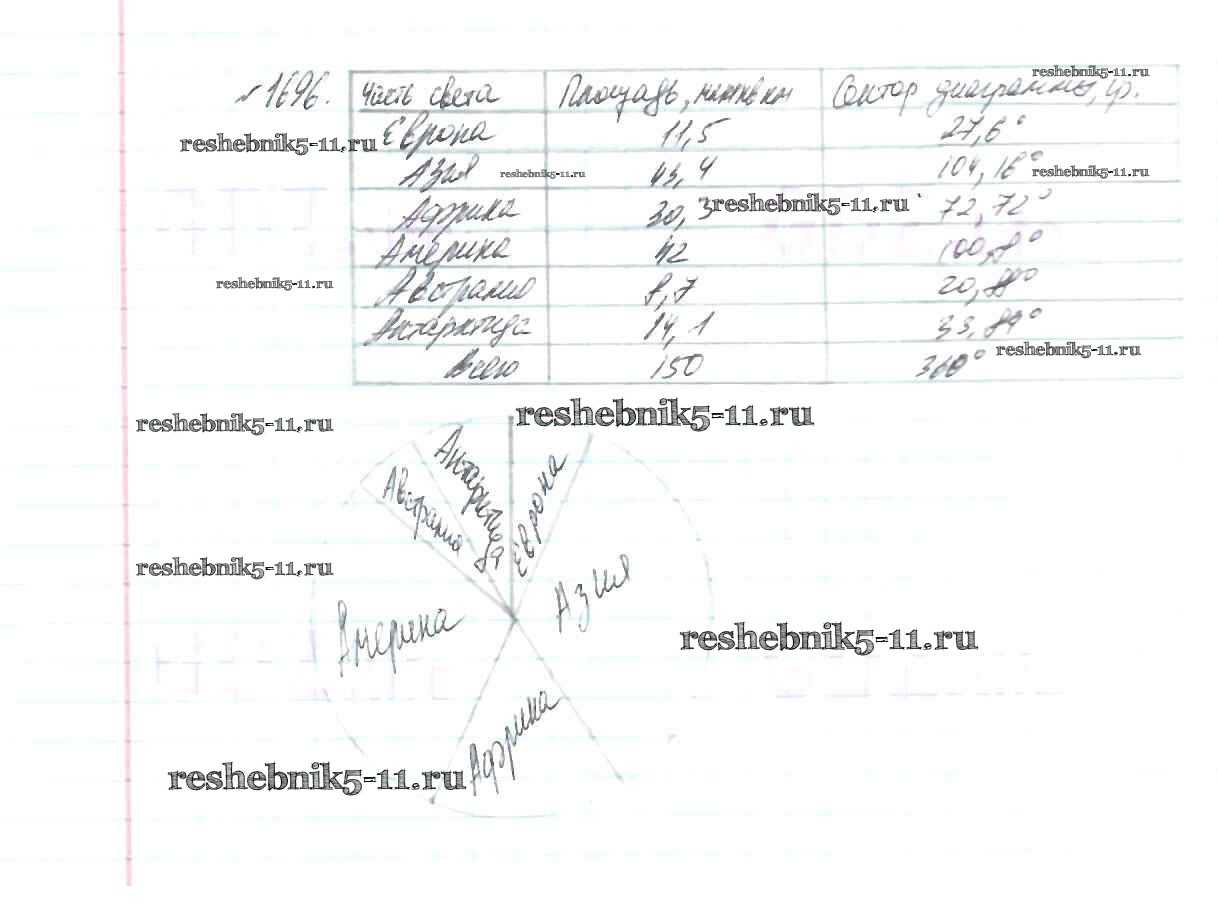 №1696.
Часть света Площадь, млн кв км Сектор диаграммы, гр.
reshebnik5-11.ru
Европа 11,5 27,6°
reshebnik5-11.ru
Азия 43,4 104,16°
reshebnik5-11.ru
reshebnik5-11.ru
Африка 30,3 72,72°
reshebnik5-11.ru
Америка 42 100,8°
reshebnik5-11.ru
Австралия 8,7 20,88°
Антарктида 14,1 33,84°
Всего 150 360°
reshebnik5-11.ru
reshebnik5-11.ru
reshebnik5-11.ru
Австралия
Антарктида
Европа
reshebnik5-11.ru
Азия
Америка
reshebnik5-11.ru
Африка
reshebnik5-11.ru